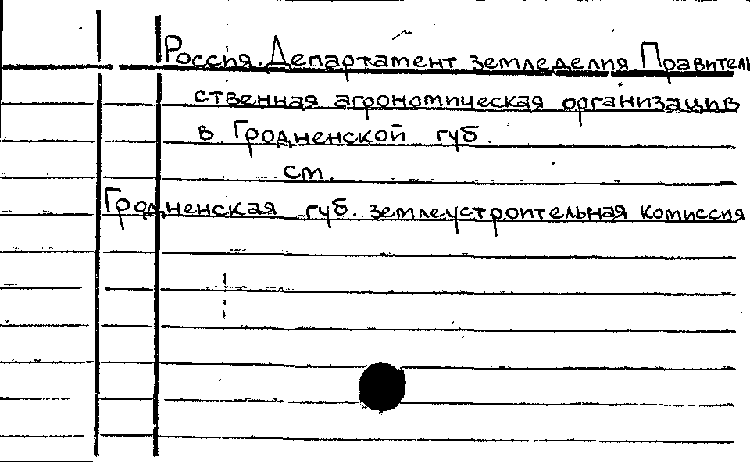 Россия. Департамент земледелия Правитель
ственная агрономическая организация
в Гродненской губ.
см.
Гродненская губ. землеустроительная комиссия